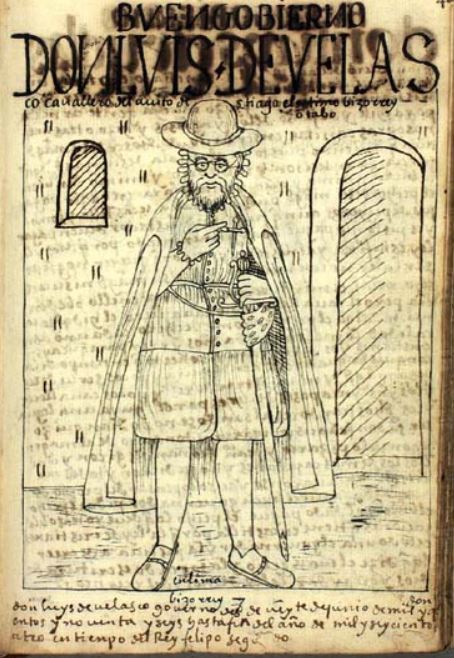 BVEN GOBIERNO
DON LVIS DE VELAS
co cauallero del auito de s tiago el setimo bizorrey
otabo
en lima
bizorrey
don
don luys de uelasco gouerno des de ueynte de junio de mil y
entos y no uenta y seys hasta fin del año de mil y seycientos
atro en tiempo del Rey felipo segundo